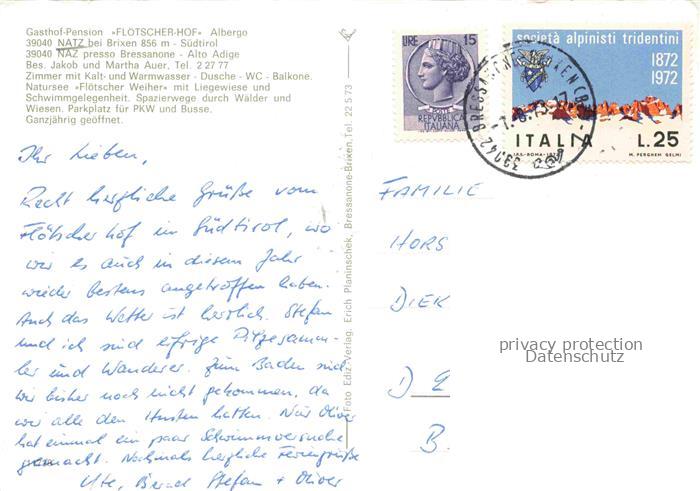 Gasthof-Pension »FLÖTSCHER-HOF« Albergo
39040 NATZ bei Brixen 856 m - Südtirol
39040 NAZ presso Bressanone - Alto Adige
Bes. Jakob und Martha Auer, Tel. 2 27 77
Zimmer mit Kalt- und Warmwasser - Dusche - WC - Balkone.
Natursee »Flötscher Weiher« mit Liegewiese und
Schwimmgelegenheit. Spazierwege durch Wälder und
Wiesen. Parkplatz für PKW und Busse.
Ganzjährig geöffnet.
Ihr Lieben,
Recht herzliche Grüße vom
Flötscherhof in Südtirol, wo
wir es auch in diesem Jahr
wieder bestens angetroffen haben.
Auch das Wetter ist herrlich. Stefan
und ich sind eifrige Pilzesamm-
ler und Wanderer. Zum Baden sind
wir bisher noch nicht gekommen, da
wir alle den Husten hatten. Nur Oliver
hat einmal ein paar Schwimmversuche
gemacht. Nochmals herzliche Feriengrüße
Ute, Bernd Stefan + Oliver
Foto Ediz.-Verlag. Erich Planinschek, Bressanone-Brixen, Tel. 22 5 73
LIRE 15
REPVBBLICA
ITALIANA
società alpinisti tridentini
1872
1972
ITALIA L.25
M. PERGHEM GELMI
39042 BRESSANONE
FAMILIE
HORS
DIEK
D
B.
privacy protection
Datenschutz